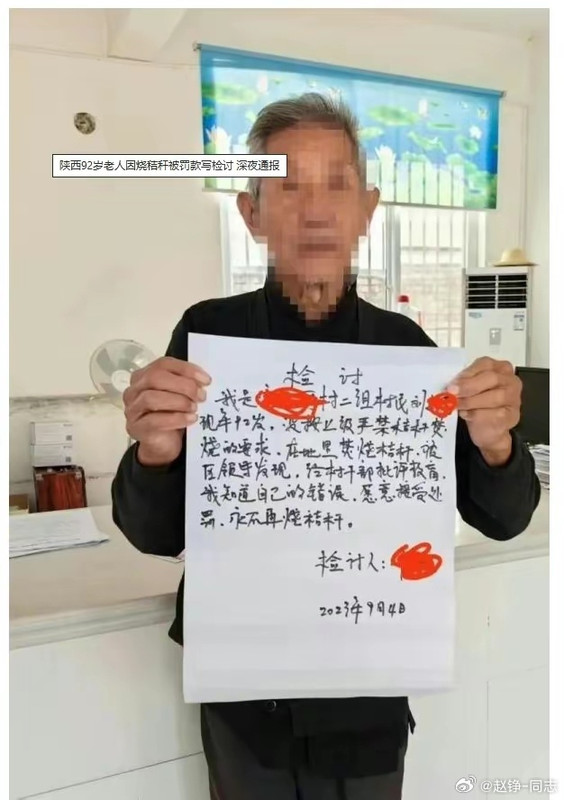 陕西92岁老人因烧秸秆被罚款写检讨 深夜通报
检 讨
我是 村二组村民刘
现年92岁，没按上级严禁秸秆焚
烧的要求，在地里焚烧秸秆，被
区领导发现，经村干部批评教育，
我知道自己的错误，愿意接受处
罚、永不再烧秸秆。
检讨人：
2023年9月4日
@赵铮-同志